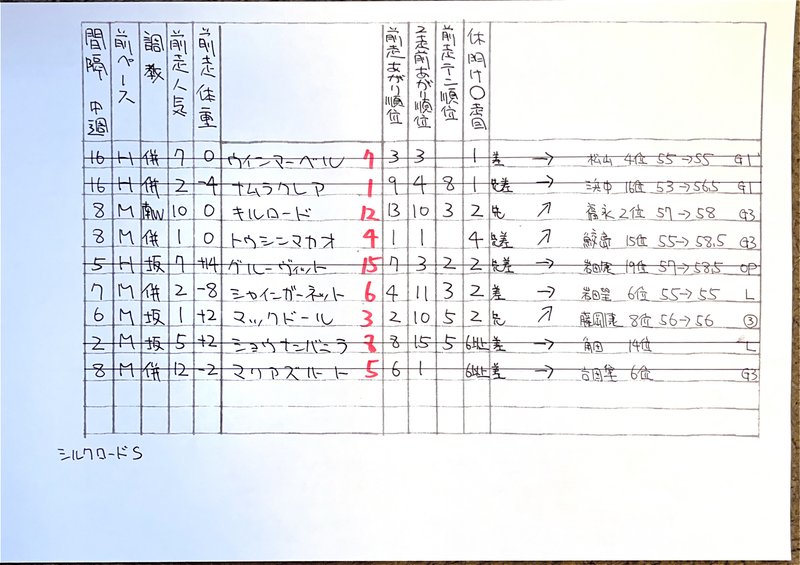 間隔 中週 前ペース 調教 前走人気 前走体重 前走あがり順位 2走前あがり順位 前走テン順位 休明け〇走目
16 H 併 7 0 ウインマーベル 7 3 3 1 差 → 松山 4位 55→55 G1
16 H 併 2 -4 ナムラクレア 1 9 4 8 1 先差 → 浜中 16位 53→56.5 G1
8 M 南W 10 0 キルロード 12 13 10 3 2 先 ↗ 福永 2位 57→58 G3
8 M 併 1 0 トウシンマカオ 4 1 1 4 先差 ↗ 鮫島 15位 55→58.5 G3
5 H 坂 7 +14 グルーヴィット 15 7 3 2 2 先差 → 岩田康 19位 57→58.5 OP
7 M 併 2 -8 シャインガーネット 6 4 11 3 2 差 → 岩田望 6位 55→55 L
6 M 坂 1 +2 マッドクール 3 2 10 5 2 先 ↗ 藤岡康 8位 56→56 ③
2 M 坂 5 +2 ショウナンバニラ 8 8 15 5 6以上 差 → 角田 14位 L
8 M 併 12 -2 マリアズハート 5 6 1 6以上 差 → 古田隼 6位 G3
シルクロードS